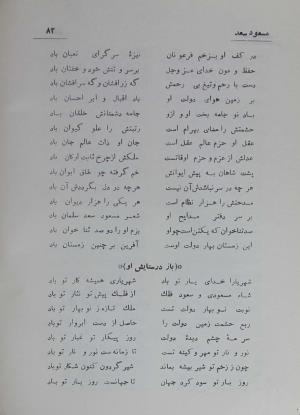 مسعود سعد ۸۲
در کف او بزخم فرعونان نیزهٔ سرگرای ثعبان باد
حفظ و دون خدای عز وجل برسر و تنش خود و خفتان باد
دست با رحم وتیغ بی رحمش گه زرافشان و گه سرافشان باد
بر زمین هوای دولت او باد اقبال و ابر احسان باد
باد نو جامه بخت او هر روز جامه دشمنانش خلقان باد
حشمتش را مضای بهرام است رتبتش را علو کیوان باد
عقل او حزم عالم عقل است جان او ذات عالم جان باد
عدلش از عزم و حزم اوقاتست ملکش ازچرخ ثابت ارکان باد
پشت شاهان به پیش ایوانش خم گرفته چو طاق ایوان باد
هر چه در سر نباشدش آن نیست هرچه در دل بگرددش آن باد
مدحتش را هزار نظام است هر یکی را هزار دیوان باد
بر سر دفتر مدایح او شعر مسعود سعد سلمان باد
مدتناخوان که یکتن است چو او روز او را دو صد ثنا خوان باد
این زمستان بهار دولت اوست آفرین بر چنین زمستان باد
«(باز درستایش او)»
شهریارا خدای یار تو باد شهریاری همیشه کار تو باد
شاه مسعودی و سعود فلک از فلک پیش تو نثار تو باد
نوبت ملک تست و تا باشد ملک تازه ز نو بهار تو باد
ربع حشمت زمین دولت را حاصل از دست ابروار تو باد
سرمهٔ چشم دیدهٔ دولت روز پیکار تو غبار تو باد
نور و نار تو مهر و کینه تست تا زمانه ست نور و نار تو باد
چون ز زخم تو شیر بیشه بماند شیر گردون کنون شکار تو باد
روز بار تو سود کرد جهان تا جهانست روز بار تو باد